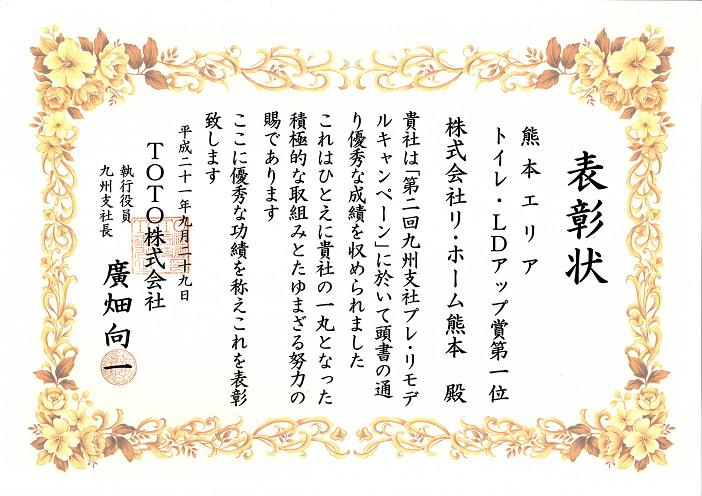 表彰状
熊本エリア
トイレ・LDアップ賞第一位
株式会社リ・ホーム熊本 殿
貴社は「第二回九州支社プレ・リモデ
ルキャンペーン」に於いて頭書の通
り優秀な成績を収められました
これはひとえに貴社の一丸となった
積極的な取組みとたゆまざる努力の
賜であります
ここに優秀な功績を称えこれを表彰
致します
平成二十一年九月二十九日
TOTO株式会社
執行役員
九州支社長
廣畑向一